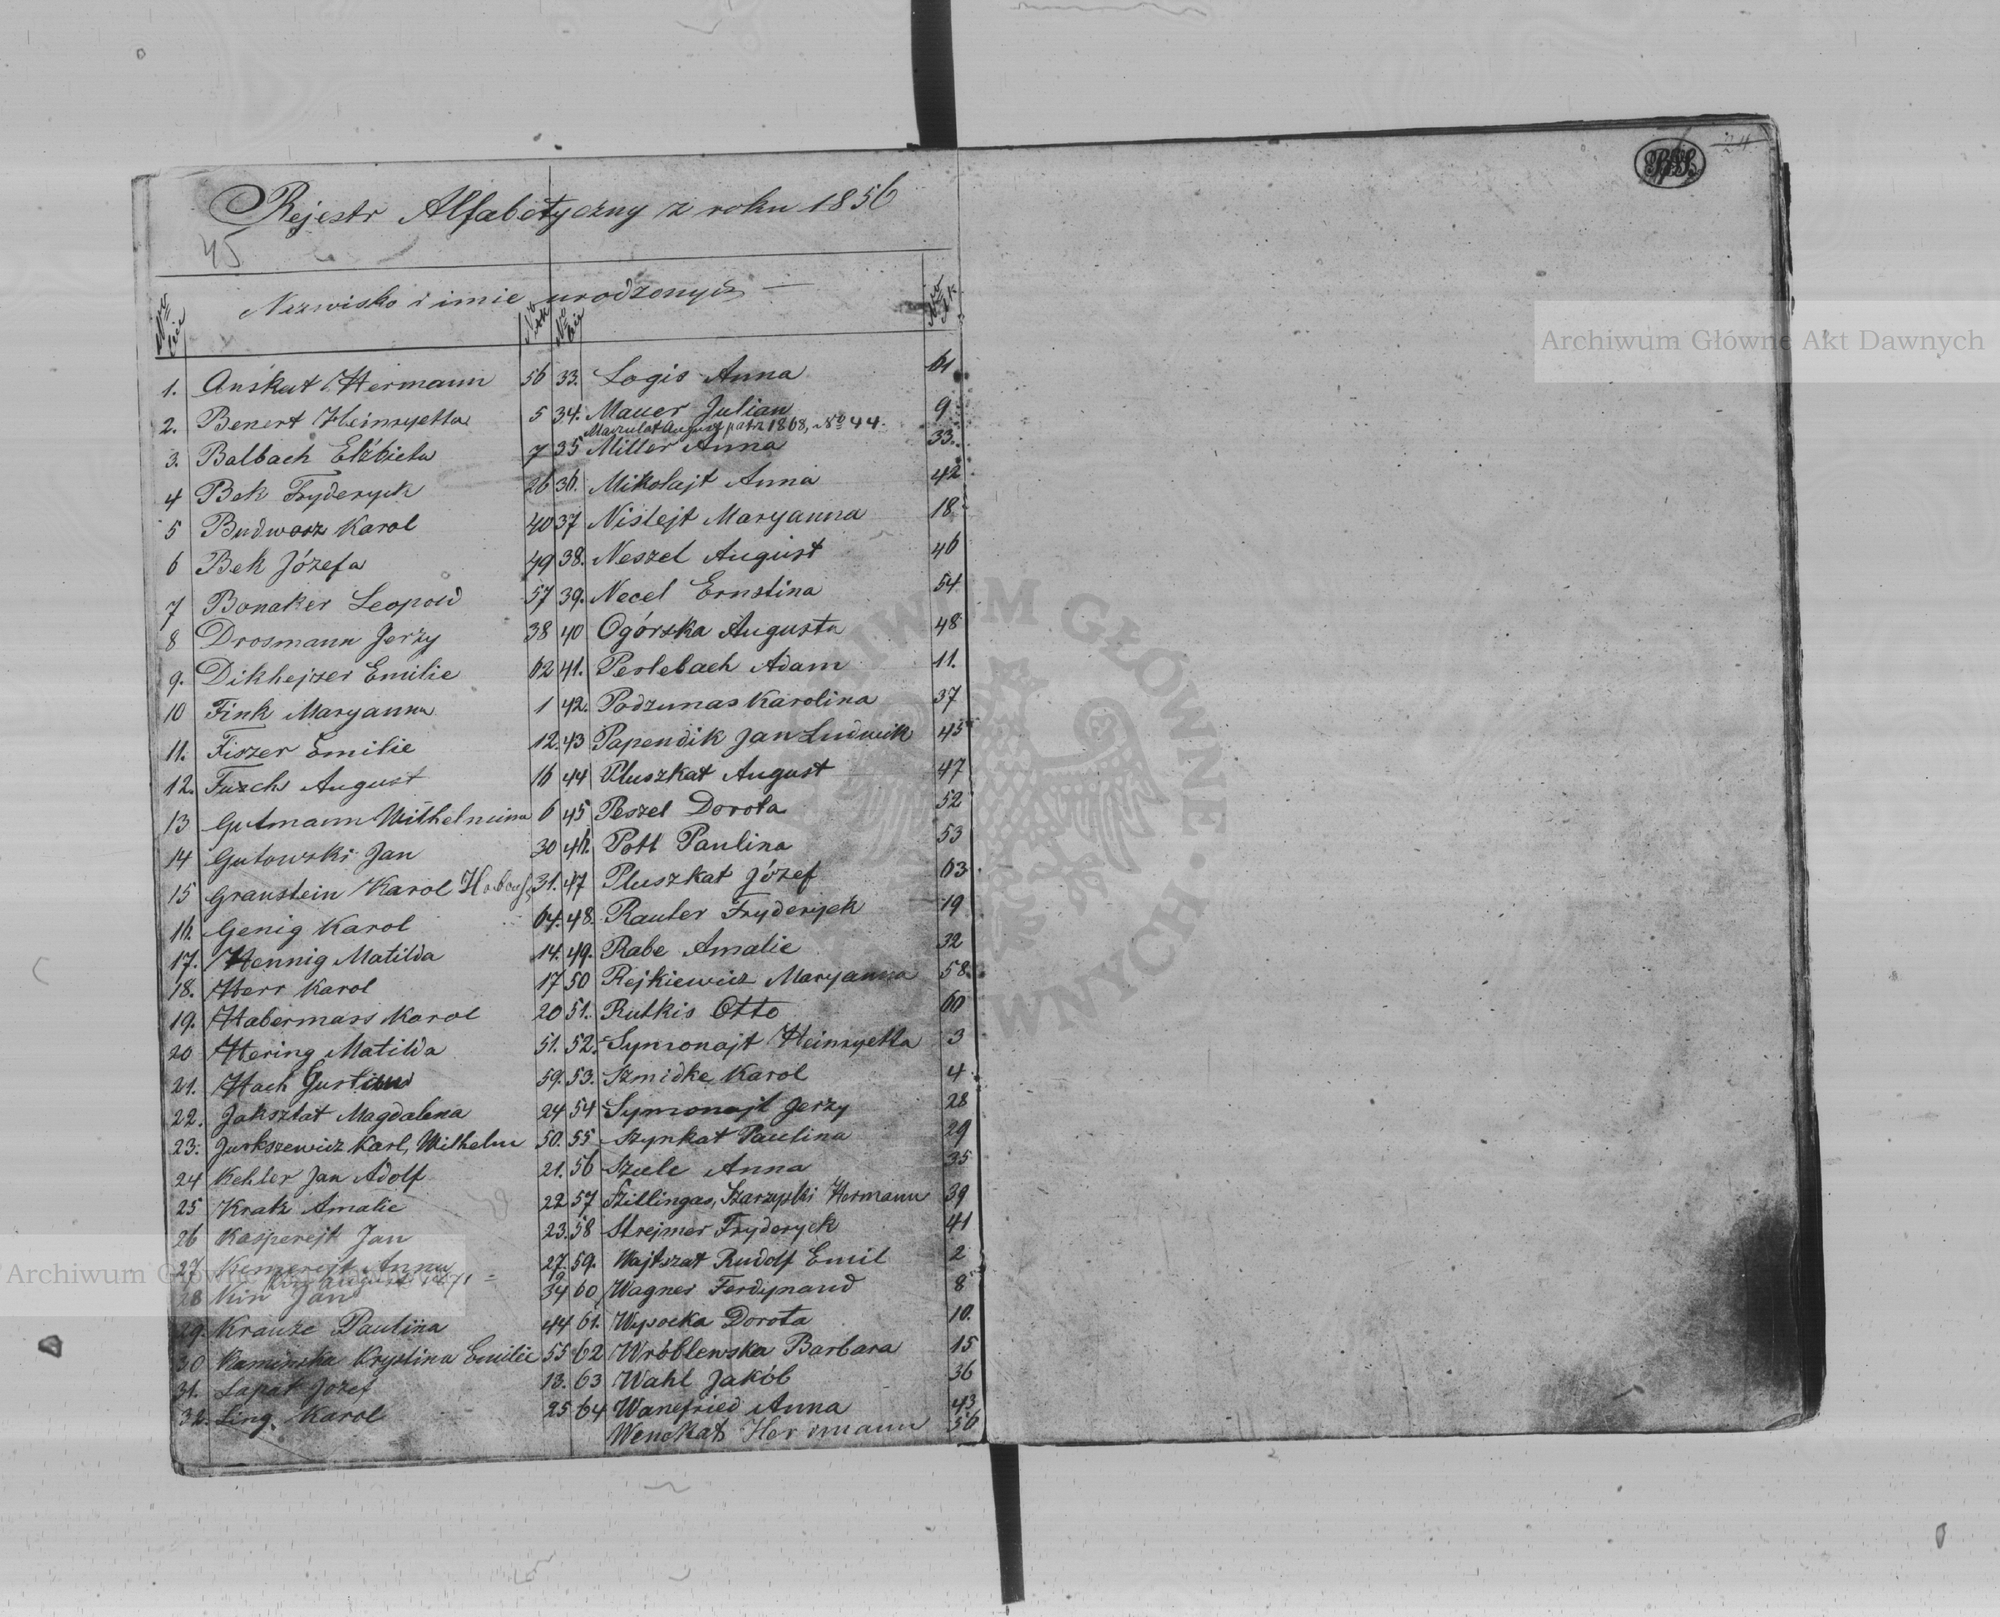 Rejestr Alfabetyczny z roku 1856
45
24
Nazwisko i imie urodzonych
1. Anskut Hermann 56
2. Benert Heinryetta 5
3. Balbach Elżbieta 7
4 Bek Fryderyck 26
5 Budwosz Karol 40
6 Bek Józefa 49
7 Bonaker Leopold 57
8 Drosmann Jerzy 38
9. Dikhejzer Emilie 62
10 Fink Maryanna 1
11. Fiszer Emilie 12.
12. Fuxchs August 16
13 Gutmann Wilhelmina 6
14 Gutowski Jan 30
15 Graustein Karol 31.
16. Genig Karol 64.
17. Hennig Matilda 14.
18. Herr Karol 17
19. Habermass Karol 20
20 Hering Matilda 51.
21. Hach Gustaw 59.
22. Joksztat Magdalena 24
23. Jurkszewicz Karl, Wilhelm 50.
24 Kehler Jan Adolf 21.
25 Krak Amalie 22
26 Kasperejt Jan 23.
27 Kemerejt Anna 27.
28 Kin Jan 34
29. Krauze Paulina 44
30 Kaminska Krystina Emilie 55
31. Lapat Jozef 13.
32. Ling. Karol 25
33. Logis Anna 61
34. Mauer Julian 9
August patrz 1868, No 44.
35 Miller Anna 33.
36. Mikołajt Anna 42
37 Nislejt Maryanna 18
38. Neszel August 46
39. Necel Ernstina 54
40 Ogórska Augusta 48
41. Perlebach Adam 11.
42. Podzunas Karolina 37
43 Papendik Jan Ludwik 45
44 Pluszkat August 47
45 Peszel Dorota 52
46. Pott Paulina 53
47 Pluszkat Józef 63
48. Rauter Fryderyck 19
49. Rabe Amalie 32
50 Rejkiewicz Maryanna 58
51. Rutkis Otto 60
52. Symonajt Heinryetta 3
53. Szmidke Karol 4
54 Symonajt Jerzy 28
55 Szynkat Paulina 29
56 Szele Anna 35
57 Szillingas, Szarzyski Hermann 39
58 Strejmer Fryderyck 41
59. Wajtszat Rudolf Emil 2
60 Wagner Ferdynand 8
61. Wysocka Dorota 10.
62 Wróblewska Barbara 15
63 Wahl Jakób 36
64 Wanefried Anna 43
Wenckat Hermann 56
Archiwum Główne Akt Dawnych
Archiwum Główne